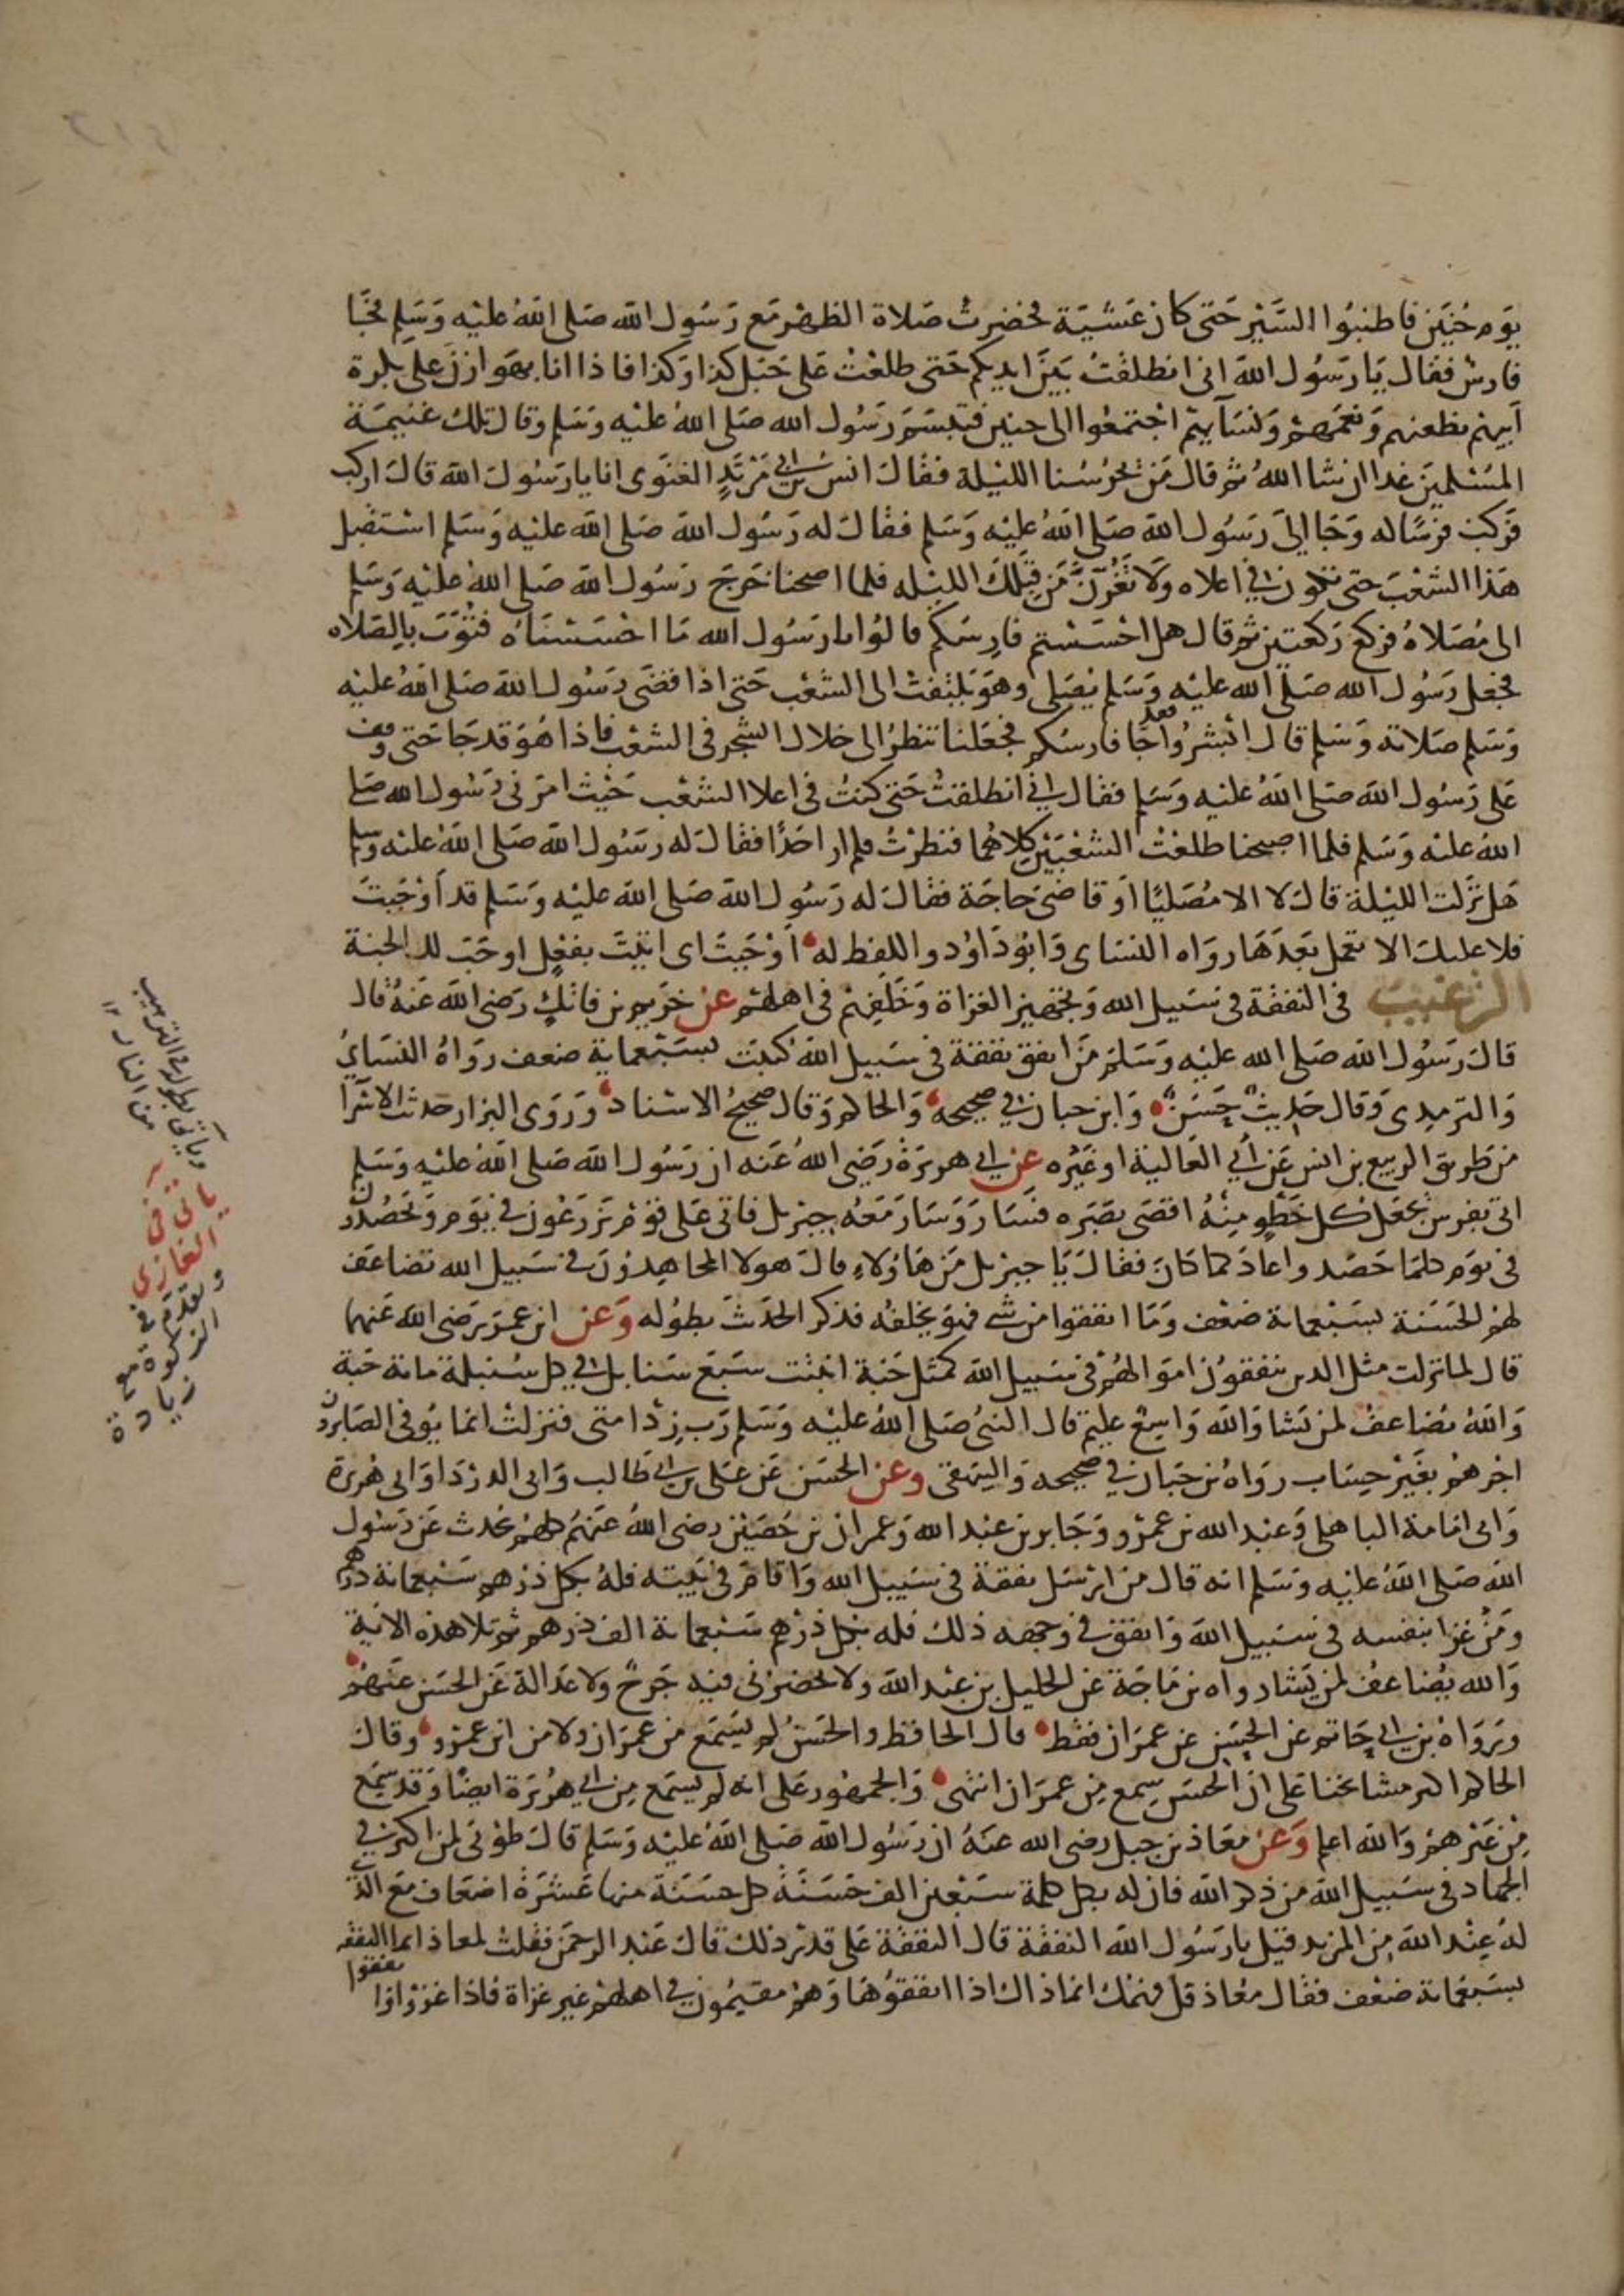 يوم حنين فاطنبوا السير حتى كان عشية فحضرت صلاة الظهر مع رسول الله صلى الله عليه وسلم فجا
فارس فقال يا رسول الله اني انطلقت بين ايديكم حتى طلعت على جبل كذا وكذا فاذا انا بهوازن على بكرة
ابيهم بظعنهم ونعمهم ونسآيهم اجتمعوا الى حنين فتبسم رسول الله صلى الله عليه وسلم وقال تلك غنيمة
المسلمين غدا ان شا الله ثم قال من يحرسنا الليلة فقال انس بن ابي مرثد الغنوى انا يا رسول الله قال اركب
فركب فرسا له وجا الى رسول الله صلى الله عليه وسلم فقال له رسول الله صلى الله عليه وسلم استقبل
هذا الشعب حتى تكون في اعلاه ولا نغرن من قبلك الليله فلما اصبحنا خرج رسول الله صلى الله عليه وسلم
الى مصلاه فركع ركعتين ثم قال هل احسستم فارسكم قالوا يا رسول الله ما احسسناه فثوب بالصلاه
فجعل رسول الله صلى الله عليه وسلم يصلى وهو يلتفت الى الشعب حتى اذا قضى رسول الله صلى الله عليه
وسلم صلاته وسلم قال ابشروا فقد جا فارسكم فجعلنا ننظر الى خلال الشجر في الشعب فاذا هو قد جا حتى وقف
على رسول الله صلى الله عليه وسلم فقال اني انطلقت حتى كنت في اعلا الشعب حيث امرني رسول الله صلى
الله عليه وسلم فلما اصبحنا طلعت الشعبين كلاهما فنظرت فلم ار احدا فقال له رسول الله صلى الله عليه وسلم
هل نزلت الليلة قال لا الا مصليا او قاضى حاجة فقال له رسول الله صلى الله عليه وسلم قد اوجبت
فلا عليك الا تعمل بعدها رواه النساى وابو داود واللفظ له اوجبت اى اتيت بفعل اوجب لك الجنة
الترغيب في النفقة في سبيل الله وتجهيز الغزاة وخلفهم في اهلهم عن خريم بن فاتك رضى الله عنه قال
قال رسول الله صلى الله عليه وسلم من انفق نفقة في سبيل الله كتبت بسبعماية ضعف رواه النساي
والترمدى وقال حديث حسن وابن حبان في صحيحه والحاكم وقال صحيح الاسناد وروى البزار حديث الاسرا
من طريق الربيع بن انس عن ابي العالية او غيره عن ابي هريرة رضى الله عنه ان رسول الله صلى الله عليه وسلم
اتى بفرس يجعل كل خطو منه اقصى بصره فسار وسار معه جبريل فاتى على قوم يزرعون في يوم ويحصدون
في يوم كلما حصدوا عاد كما كان فقال يا جبريل من هاؤلاء قال هولا المجاهدون في سبيل الله تضاعف
لهم الحسنة بسبعماية ضعف وما انفقوا من شي فهو يخلفه فذكر الحديث بطوله وعن ابن عمر رضى الله عنهما
قال لما نزلت مثل الدين ينفقون اموالهم في سبيل الله كمثل حبة انبتت سبع سنابل في كل سنبلة ماية حبة
والله يضاعف لمن يشا والله واسع عليم قال النبى صلى الله عليه وسلم رب زد امتى فنزلت انما يوفى الصابرون
اجرهم بغير حساب رواه بن حبان في صحيحه والبيهقى وعن الحسن عن على بن ابي طالب وابى الدردا وابى هريرة
وابى امامة الباهلى وعبد الله بن عمرو وجابر بن عبد الله وعمران بن حصين رضى الله عنهم كلهم يحدث عن رسول
الله صلى الله عليه وسلم انه قال من ارسل بنفقة في سبيل الله واقام في بيته فله بكل درهم سبعماية درهم
ومن غزا بنفسه في سبيل الله وانفق في وجهه ذلك فله بكل درهم سبعماية الف درهم ثم تلا هذه الاية
والله يضاعف لمن يشا رواه بن ماجة عن الخليل بن عبد الله ولا يحضرني فيه جرح ولا عدالة عن الحسن عنهم
ورواه بن ابي حاتم عن الحسن عن عمران فقط قال الحافظ والحسن لم يسمع من عمران ولا من ابن عمرو وقال
الحاكم اكثر مشايخنا على ان الحسن سمع من عمران انتهى والجمهور على انه لم يسمع من ابي هريرة ايضا وقد سمع
من غيرهم والله اعلم وعن معاذ بن جبل رضى الله عنه ان رسول الله صلى الله عليه وسلم قال طوبى لمن اكثر في
الجهاد في سبيل الله من ذكر الله فان له بكل كلمة سبعين الف حسنة كل حسنة منها عشرة اضعاف مع الذي
له عند الله من المزيد قيل يا رسول الله النفقة قال النفقة على قدر ذلك قال عبد الرحمن فقلت لمعاذ انما النفقه
بسبعماية ضعف فقال معاذ قل فهمك انما ذاك اذا انفقوها وهم مقيمون في اهلهم غير غزاة فاذا غزوا وانفقوا
من النار ١٢
ياتى في
الغازى
وتقدم في
الزكوة مع
زيادة